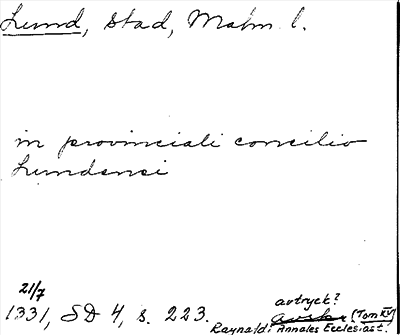 Lund, stad, Malm. l.
in provinciali concilio
Lundensi
21/7
1331, SD 4, s. 223.
avtryck?
avskr. (Tom XV)
Raynaldi Annales Ecclesiast.